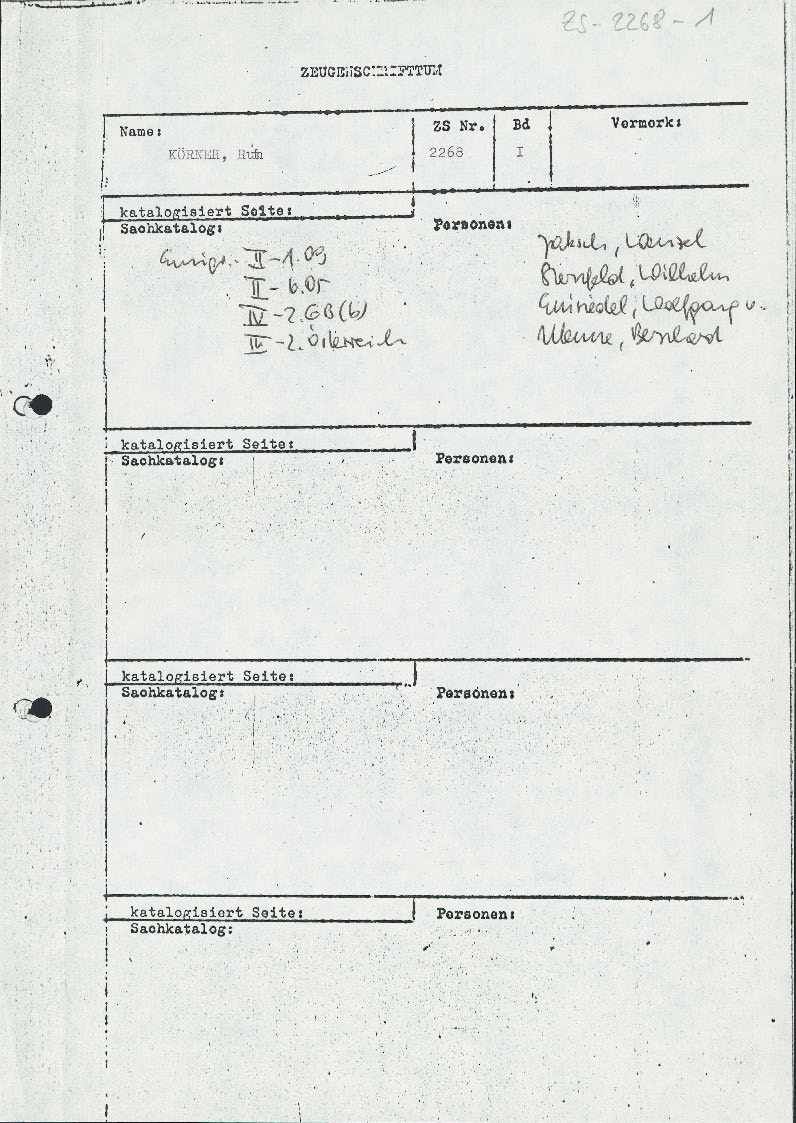 ZS-2268-1
ZEUGENSCHRIFTTUM
Name: ZS Nr. Bd Vermerk:
KÖRNER, Ruth 2268 I
katalogisiert Seite:
Sachkatalog: Personen:
Emigr. - II - 1.09 Jaksch, Wenzel
II - 6.05 Sternfeld, Wilhelm
IV - 2.GB(b) Einsiedel, Wolfgang v.
IV - 2.Österreich Menne, Bernhard
katalogisiert Seite:
Sachkatalog: Personen:
katalogisiert Seite:
Sachkatalog: Personen:
katalogisiert Seite: Personen:
Sachkatalog: